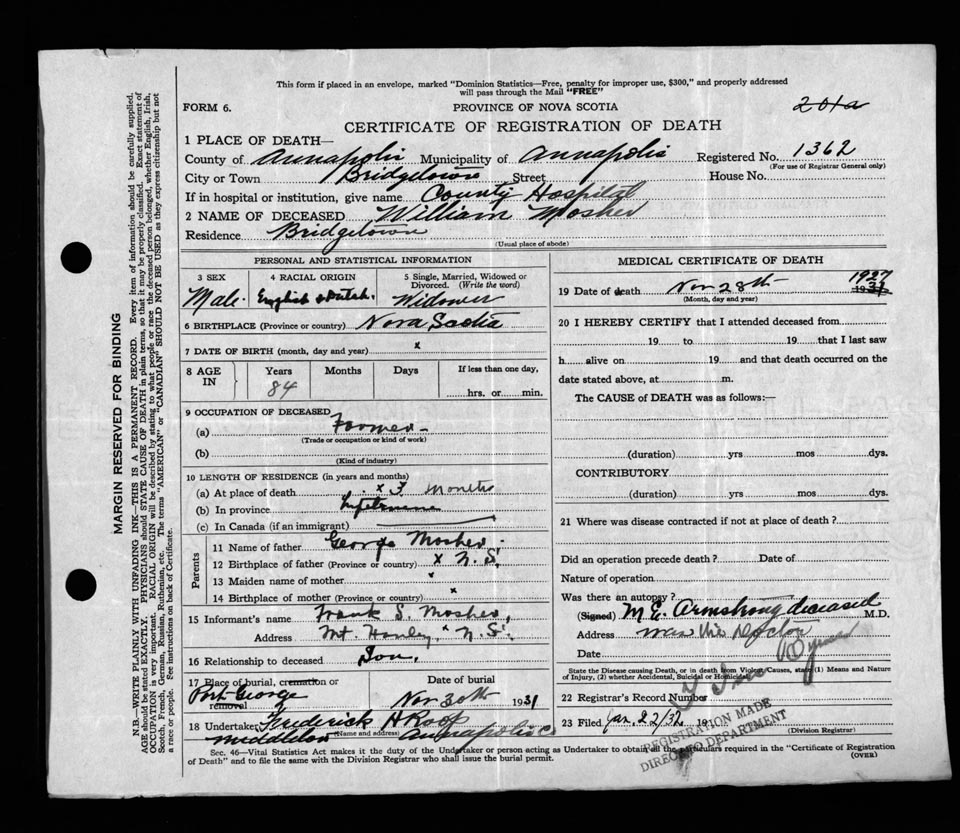 This form if placed in an envelope, marked "Dominion Statistics—Free, penalty for improper use, $300," and properly addressed
will pass through the Mail "FREE"
FORM 6.
PROVINCE OF NOVA SCOTIA
201a
CERTIFICATE OF REGISTRATION OF DEATH
1 PLACE OF DEATH—
County of Annapolis Municipality of Annapolis Registered No. 1362
(For use of Registrar General only)
City or Town Bridgetown Street House No.
If in hospital or institution, give name County Hospital
2 NAME OF DECEASED William Mosher
Residence Bridgetown
(Usual place of abode)
PERSONAL AND STATISTICAL INFORMATION
3 SEX 4 RACIAL ORIGIN 5 Single, Married, Widowed or Divorced. (Write the word)
Male. English & Dutch. Widower
6 BIRTHPLACE (Province or country) Nova Scotia
7 DATE OF BIRTH (month, day and year) x
8 AGE IN Years Months Days If less than one day,
84 hrs. or min.
9 OCCUPATION OF DECEASED
(a) Farmer
(Trade or occupation or kind of work)
(b)
(Kind of industry)
10 LENGTH OF RESIDENCE (in years and months)
(a) At place of death x 3 Months
(b) In province Lifetime
(c) In Canada (if an immigrant)
Parents
11 Name of father George Mosher
12 Birthplace of father (Province or country) x N.S.
13 Maiden name of mother x
14 Birthplace of mother (Province or country) x
15 Informant's name Frank S. Mosher,
Address Mt. Hanley, N.S.
16 Relationship to deceased Son.
17 Place of burial, cremation or removal Date of burial
Port George Nov 30th 1931
18 Undertaker Frederick H Roop
(Name and address)
Middleton Annapolis Co
MEDICAL CERTIFICATE OF DEATH
19 Date of death Nov 28th 1927 1931
(Month, day and year)
20 I HEREBY CERTIFY that I attended deceased from
19 to 19 that I last saw
h alive on 19 and that death occurred on the
date stated above, at m.
The CAUSE of DEATH was as follows:—
(duration) yrs mos dys.
CONTRIBUTORY
(duration) yrs mos dys.
21 Where was disease contracted if not at place of death?
Did an operation precede death? Date of
Nature of operation
Was there an autopsy?
(Signed) M E. Armstrong deceased M.D.
Address was the Doctor
Date
State the Disease causing Death, or in death from Violent Causes, state (1) Means and Nature
of Injury, (2) whether Accidental, Suicidal or Homicidal
22 Registrar's Record Number
23 Filed Jan. 22/32 19
(Division Registrar)
REGISTRATION MADE
DIRECT TO DEPARTMENT
Sec. 46—Vital Statistics Act makes it the duty of the Undertaker or person acting as Undertaker to obtain all the particulars required in the "Certificate of Registration
of Death" and to file the same with the Division Registrar who shall issue the burial permit.
(OVER)
MARGIN RESERVED FOR BINDING
N.B.—WRITE PLAINLY WITH UNFADING INK—THIS IS A PERMANENT RECORD. Every item of information should be carefully supplied.
AGE should be stated EXACTLY. PHYSICIANS should STATE CAUSE OF DEATH in plain terms, so that it may be properly classified. Exact statement of
OCCUPATION is very important. RACIAL ORIGIN will be described by stating to what people or race the deceased person belonged, whether English, Irish,
Scotch, French, German, Russian, Ruthenian, etc. The terms "AMERICAN" or "CANADIAN" SHOULD NOT BE USED as they express citizenship but not
a race or people. See instructions on back of Certificate.